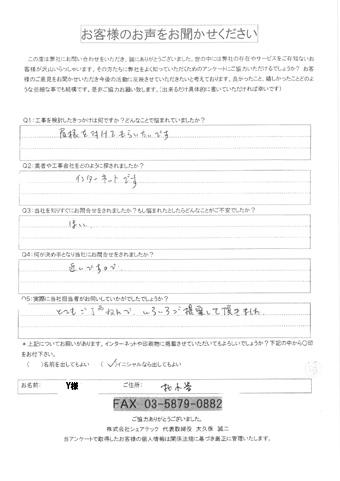 お客様のお声をお聞かせください
この度は弊社のお問い合わせをいただき、誠にありがとうございました。世の中には弊社の存在やサービスをご存知ないお
客様が沢山いらっしゃいます。その方たちに弊社をよく知っていただくためのアンケートにご協力いただけるでしょうか？ お客
様のご意見をお聞かせいただき今後の活動に反映させていただきたいと考えております。良かったこと、嬉しかったことどのよ
うな些細な事でも結構です。是非ご協力お願い致します。(出来るだけ具体的に書いていただければ幸いです)
Q1:工事を検討したきっかけは何ですか？どんなことで悩まれていましたか？
屋根を付けてもらいたいです
Q2:業者や工事会社をどのように探されましたか？
インターネットです
Q3:当社を知りすぐにお問合せをされましたか？もし悩まれたとしたらどんなことがご不安でしたか？
はい。
Q4:何が決め手となり当社にお問合せをされましたか？
近いですので、
Q5:実際に当社担当者がお伺いしていかがでしたでしょうか？
とてもごていねんで、いろいろご提案して頂きました
＊上記についてお願いがあります。インターネットや印刷物に掲載させていただいてもよろしいでしょうか？下記の中から〇印
をお付下さい。
( )名前を出してもよい (✓)イニシャルなら出してもよい
お名前: Y様 ご住所: 栃木県
FAX 03-5879-0882
ご協力ありがとうございました。
株式会社シェアテック 代表取締役 大久保 誠二
当アンケートで取得したお客様の個人情報は関係法規に基づき厳正に管理いたします。